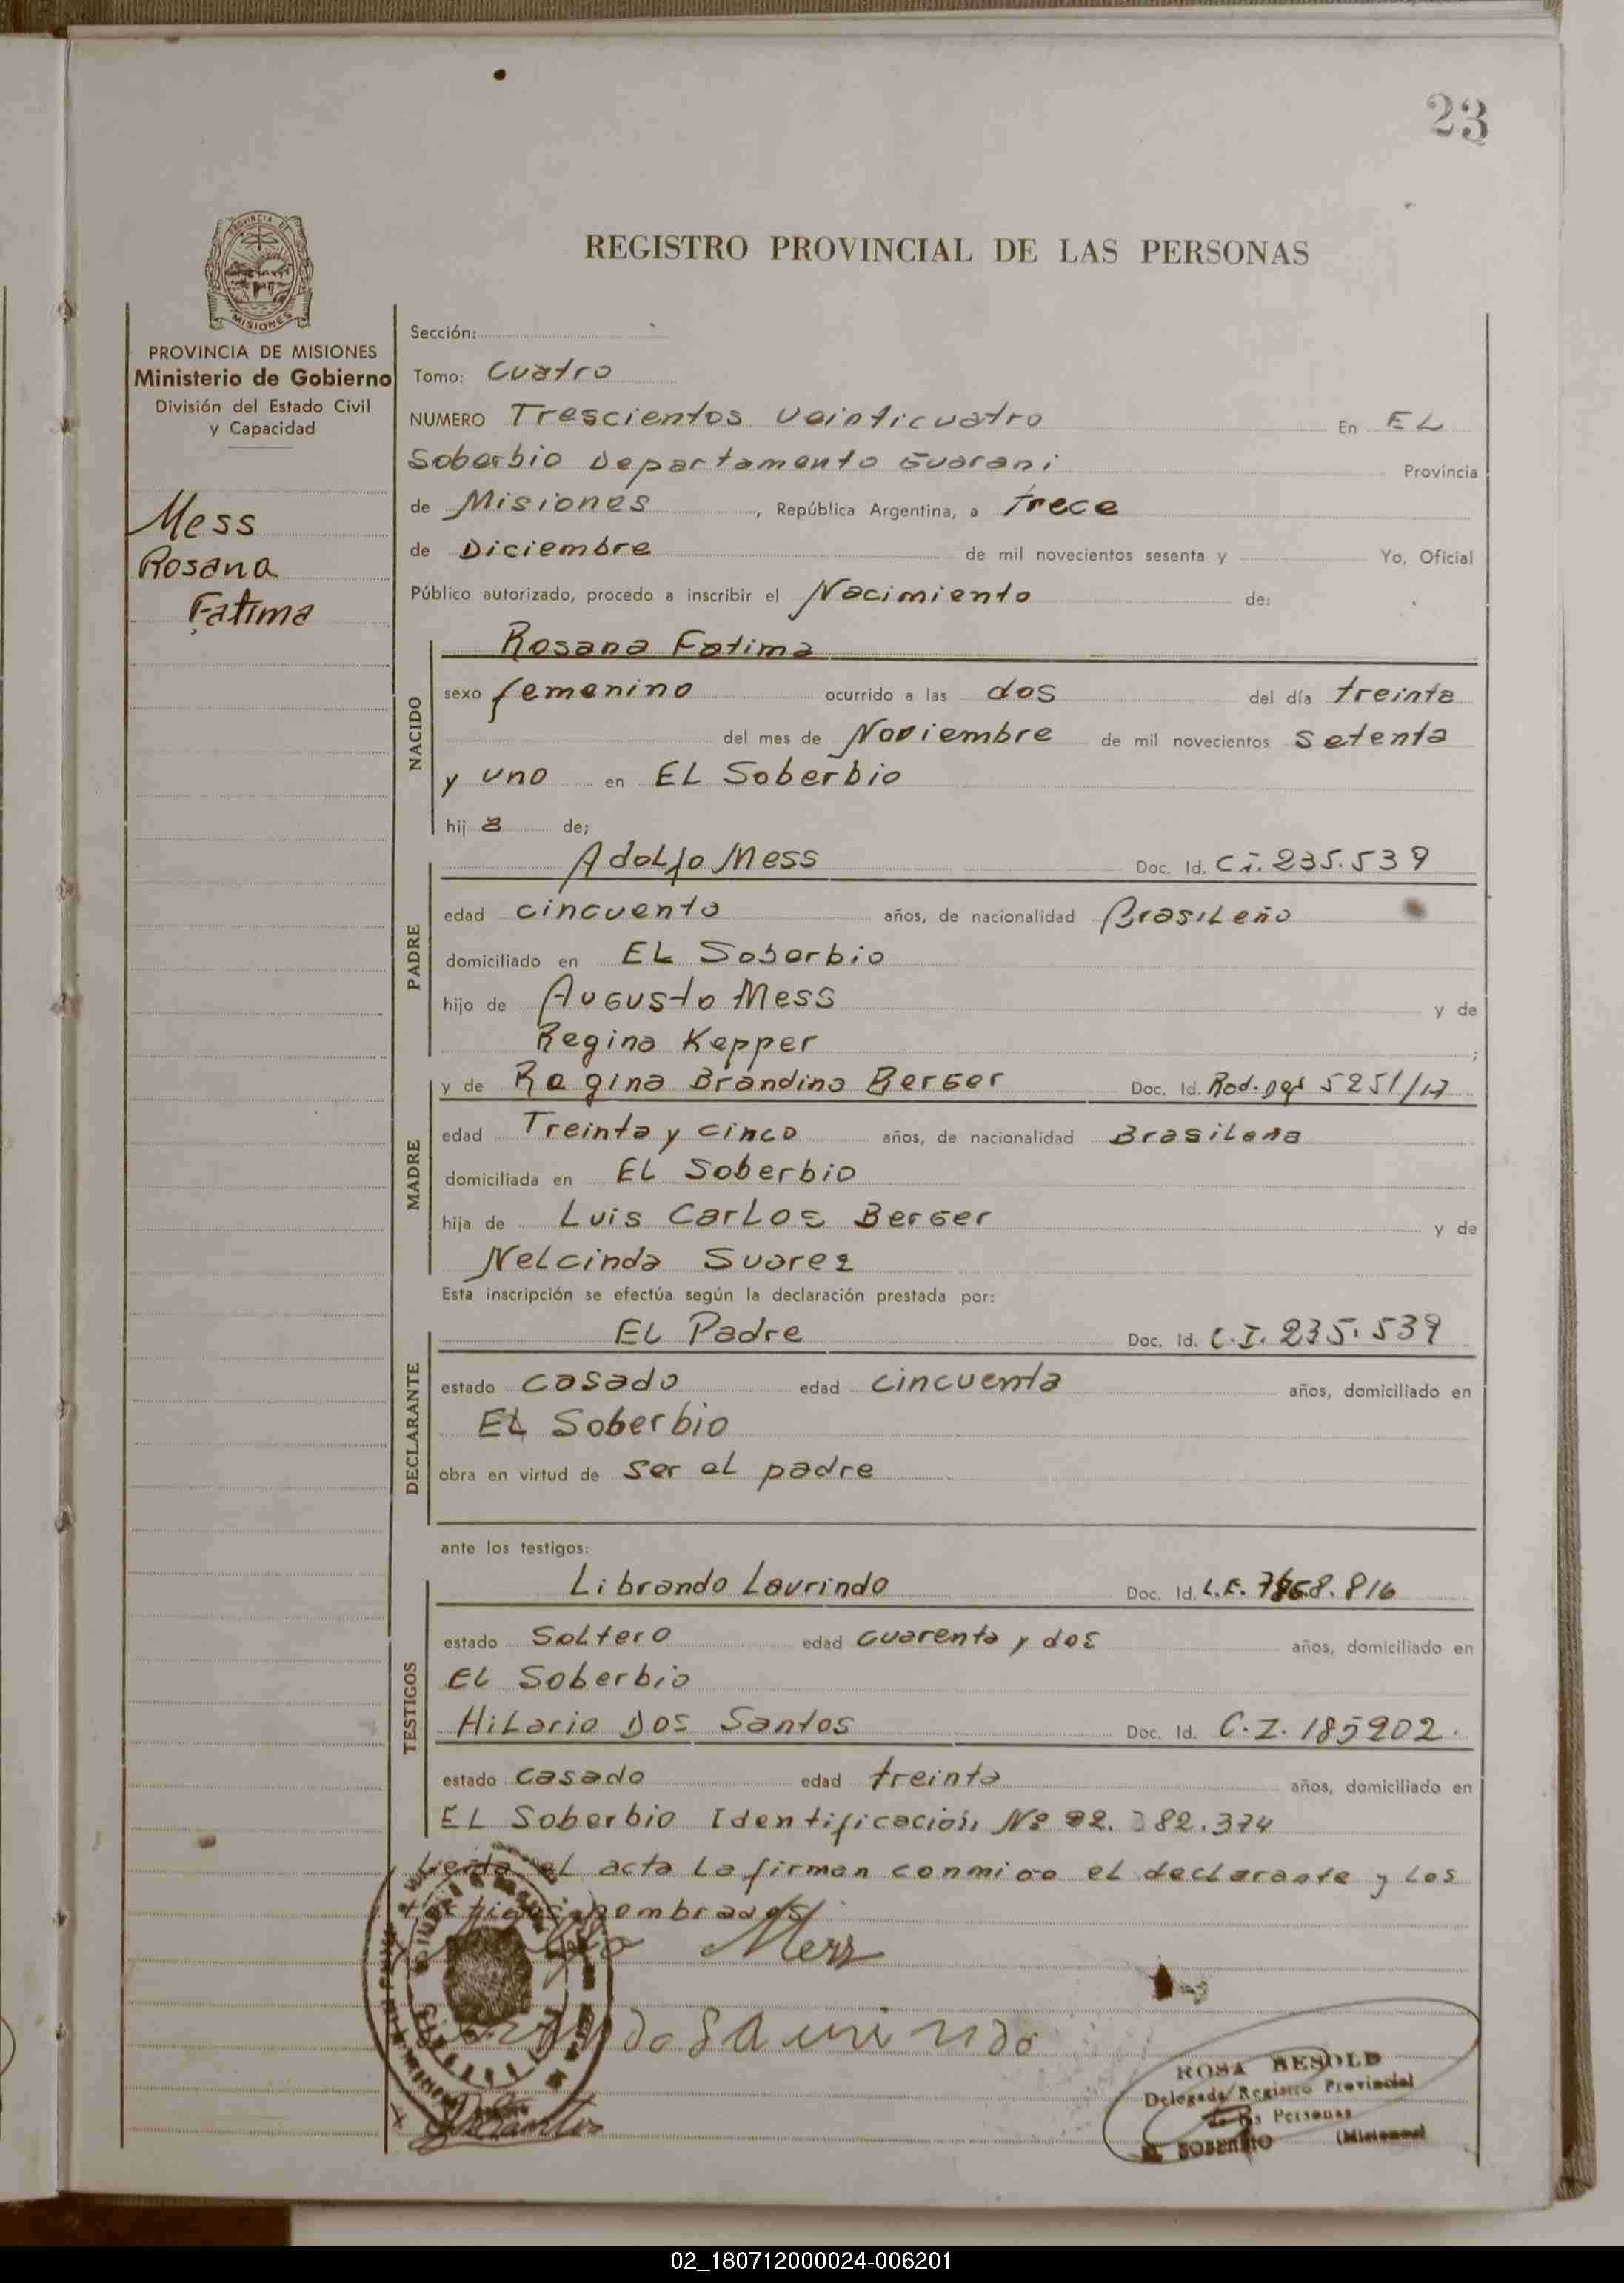 23
REGISTRO PROVINCIAL DE LAS PERSONAS
PROVINCIA DE
MISIONES
PROVINCIA DE MISIONES
Ministerio de Gobierno
División del Estado Civil
y Capacidad
Mess
Rosana
Fatima
Sección:
Tomo: Cuatro
NUMERO Trescientos Veinticuatro En EL
Soberbio Departamento Guarani Provincia
de Misiones, República Argentina, a trece
de Diciembre de mil novecientos sesenta y Yo, Oficial
Público autorizado, procedo a inscribir el Nacimiento de:
NACIDO
Rosana Fatima
sexo femenino ocurrido a las dos del día treinta
del mes de Noviembre de mil novecientos setenta
y uno en EL Soberbio
hija de;
PADRE
Adolfo Mess Doc. Id. C.I. 235.539
edad cincuenta años, de nacionalidad Brasileño
domiciliado en EL Soberbio
hijo de Augusto Mess y de
Regina Kepper ;
MADRE
y de Regina Brandina Berger Doc. Id. 5251/17
edad Treinta y cinco años, de nacionalidad Brasilena
domiciliada en EL Soberbio
hija de Luis Carlos Berger y de
Nelcinda Suarez
Esta inscripción se efectúa según la declaración prestada por:
DECLARANTE
EL Padre Doc. Id. C.I. 235.539
estado casado edad cincuenta años, domiciliado en
EL Soberbio
obra en virtud de ser el padre
ante los testigos:
TESTIGOS
Librando Laurindo Doc. Id. L.E. 816
estado Soltero edad cuarenta y dos años, domiciliado en
EL Soberbio
Hilario Dos Santos Doc. Id. C.I. 185202.
estado casado edad treinta años, domiciliado en
EL Soberbio Identificación Nº 82.374
Leida el acta La firman conmigo el declarante y los
testigos nombrados
Mess
ROSA BESOLD
Delegada Registro Provincial
de las Personas
EL SOBERBIO (Misiones)
02_180712000024-006201